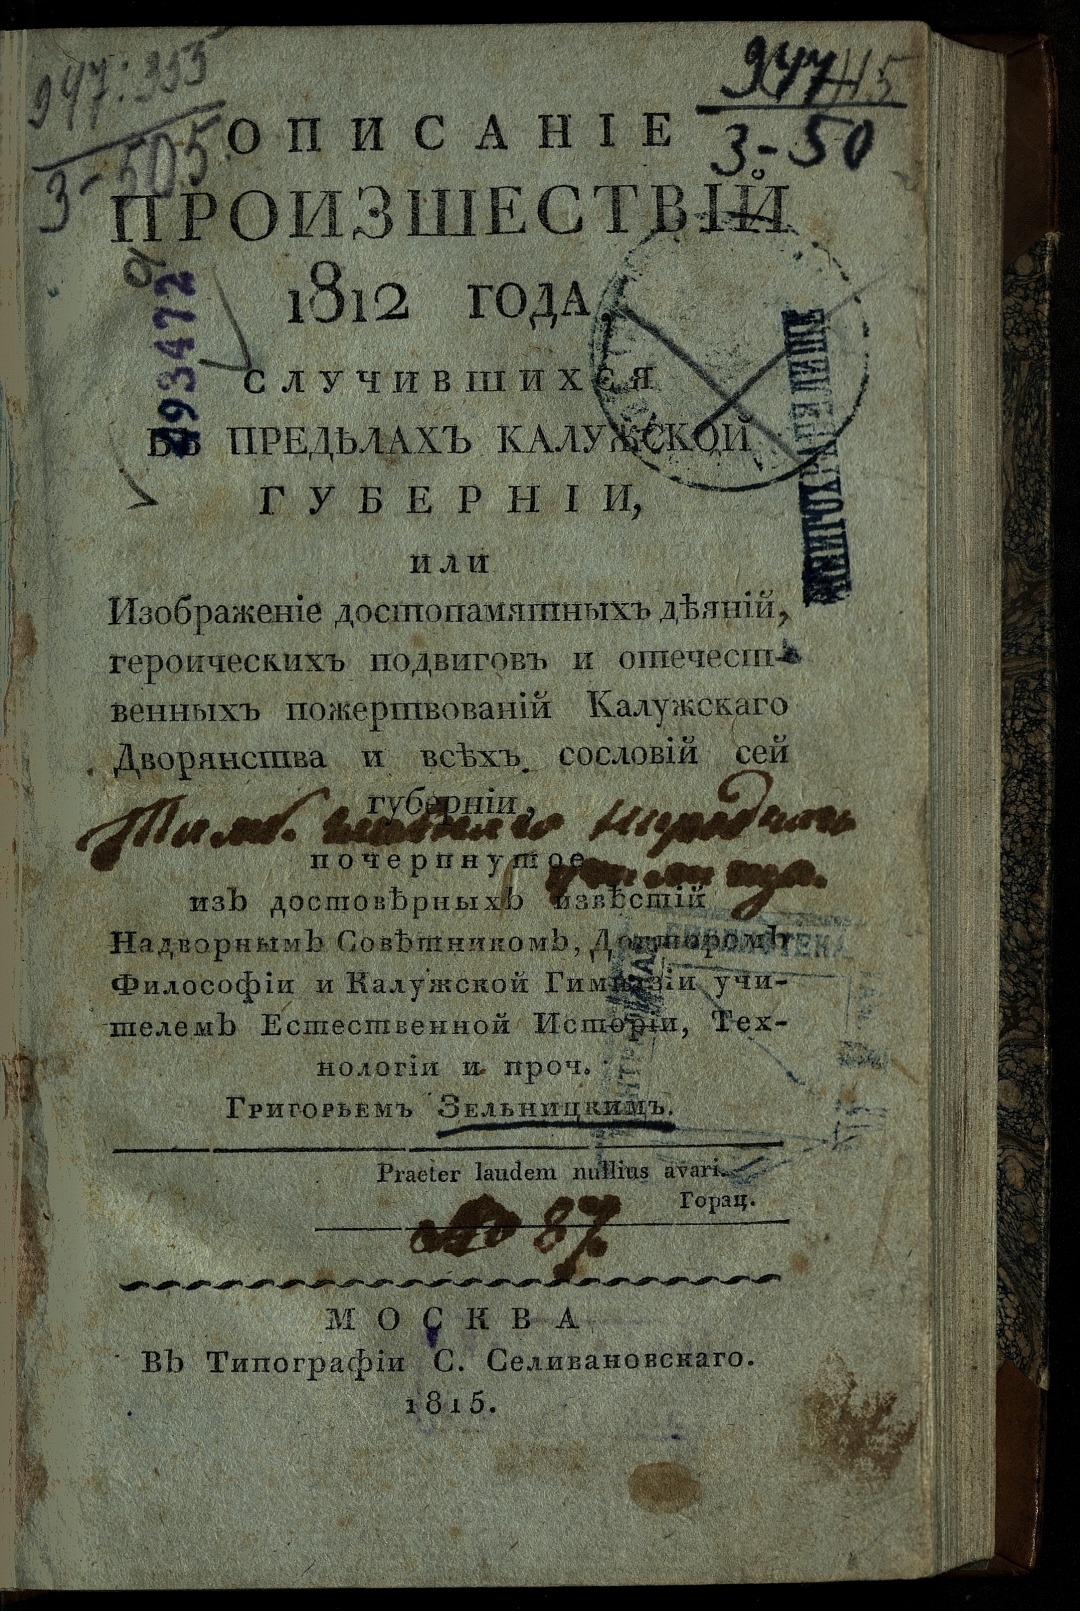 947:353
3-505
94745
3-50
ОПИСАНІЕ
ПРОИЗШЕСТВІЙ
1812 ГОДА,
СЛУЧИВШИХСЯ
ВЪ ПРЕДѢЛАХЪ КАЛУЖСКОЙ
ГУБЕРНІИ,
или
Изображеніе достопамятныхъ дѣяній,
героическихъ подвиговъ и отечест-
венныхъ пожертвованій Калужскаго
Дворянства и всѣхъ сословій сей
губерніи,
почерпнутое
изъ достовѣрныхъ извѣстій
Надворнымъ Совѣтникомъ, Докторомъ
Философіи и Калужской Гимназіи учи-
телемъ Естественной Исторіи, Тех-
нологіи и проч.
Григорьемъ Зельницкимъ.
Praeter laudem nullius avari.
Горац.
87
МОСКВА
Въ Типографіи С. Селивановскаго.
1815.
493472
КНИГОХРАНИЛИЩЕ
БИБЛИОТЕКА